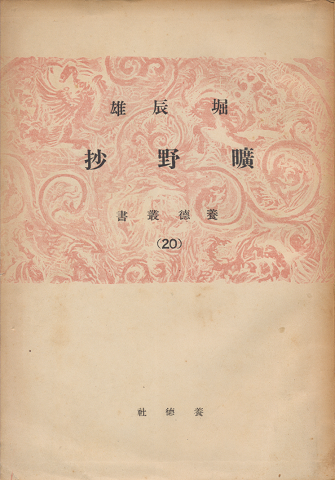 堀辰雄
曠野抄
養德叢書
(20)
養德社